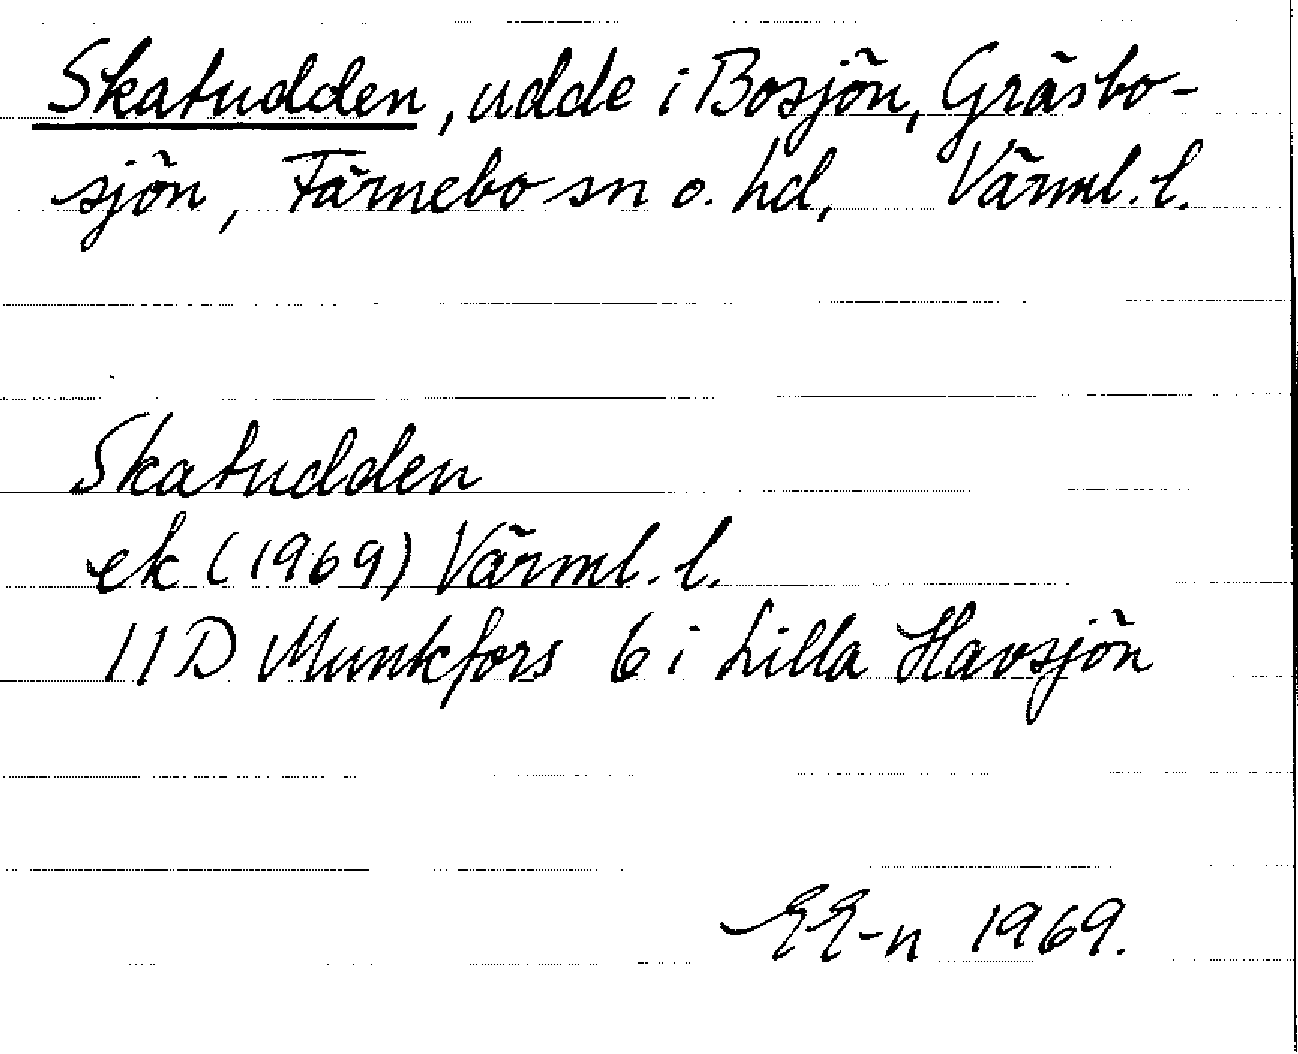 Skatudden, udde i Bosjön, Gräsbo-
sjön, Färnebo sn o. hd, Värml. l.
Skatudden
ek (1969) Värml. l.
11D Munkfors 6 i Lilla Havsjön
EE-n 1969.